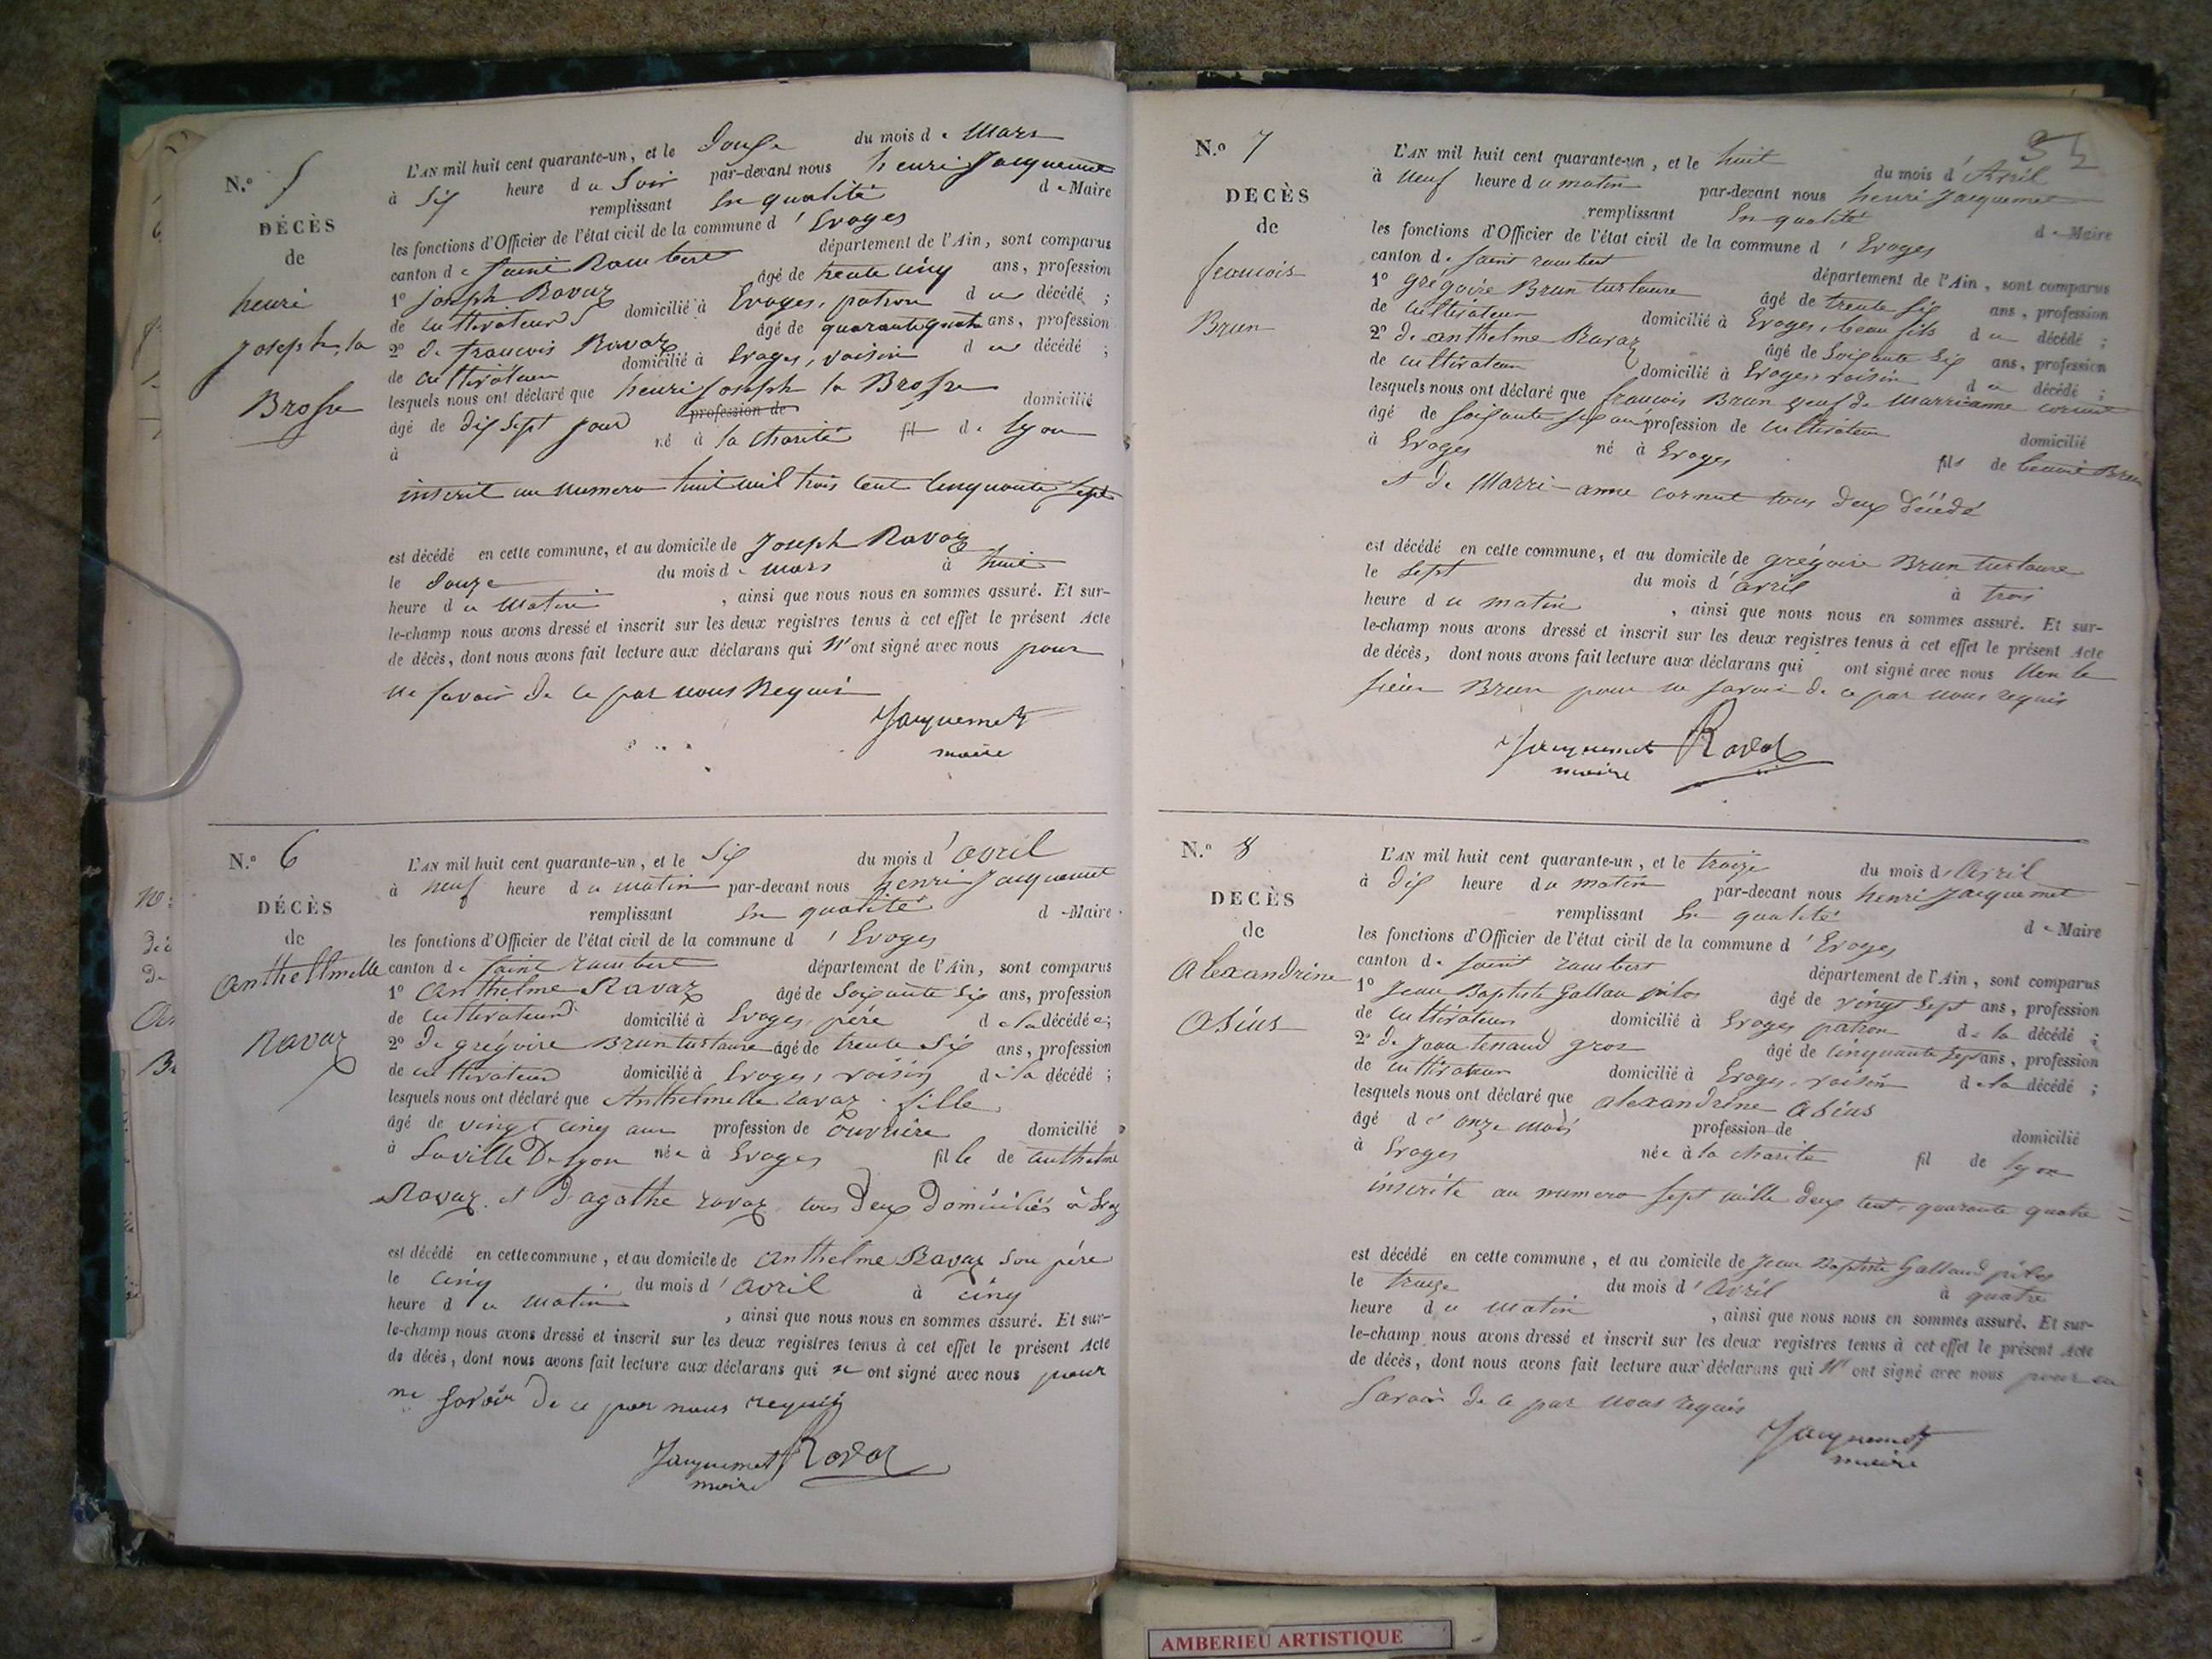 N.o 5
DÉCÈS
de
henri
Joseph la
Brosse
L'AN mil huit cent quarante-un, et le Douze du mois de Mars
à Six heure du Soir par-devant nous henri Jacquemet
remplissant En qualité de Maire
les fonctions d'Officier de l'état civil de la commune d'Evoges
canton de Saint Rambert département de l'Ain, sont comparus
1o joseph Ravaz âgé de trente cinq ans, profession
de cultivateur domicilié à Evoges, patron du décédé ;
2o de francois Ravaz âgé de quarante quatre ans, profession
de cultivateur domicilié à Evoges, voisin du décédé ;
lesquels nous ont déclaré que henri Joseph la Brosse
âgé de dix Sept jour profession de domicilié
à né à la charité fil de lyon
inscrit au numero huit mil trois cent cinquante Sept
est décédé en cette commune, et au domicile de Joseph Ravaz
le douze du mois de mars à huit
heure du Matin , ainsi que nous nous en sommes assuré. Et sur-
le-champ nous avons dressé et inscrit sur les deux registres tenus à cet effet le présent Acte
de décès, dont nous avons fait lecture aux déclarans qui N'ont signé avec nous pour
ne Savoir De ce par nous Requis
Jacquemet
maire
N.o 6
DÉCÈS
de
Anthellmelle
Ravaz
L'AN mil huit cent quarante-un, et le Six du mois d'avril
à neuf heure du matin par-devant nous henri Jacquemet
remplissant En qualité de Maire
les fonctions d'Officier de l'état civil de la commune d'Evoges
canton de Saint rambert département de l'Ain, sont comparus
1o Anthelme Ravaz âgé de Soixante Six ans, profession
de cultivateur domicilié à Evoges, père de la décédée ;
2o de grégoire Brun turtaure âgé de trente Six ans, profession
de cultivateur domicilié à Evoges, voisin de la décédé ;
lesquels nous ont déclaré que Anthelmelle ravaz fille
âgé de vingt cinq ans profession de ouvrière domicilié
à La ville De lyon née à Evoges fille de anthelme
Ravaz et d'agathe ravaz tous deux Domiciliés à Evog
est décédé en cette commune, et au domicile de Anthelme Ravaz son père
le cinq du mois d'avril à cinq
heure du matin , ainsi que nous nous en sommes assuré. Et sur-
le-champ nous avons dressé et inscrit sur les deux registres tenus à cet effet le présent Acte
de décès, dont nous avons fait lecture aux déclarans qui n ont signé avec nous pour
ne Savoir De ce par nous requis
Jacquemet Ravaz
maire
N.o 7
DECÈS
de
francois
Brun
L'AN mil huit cent quarante-un, et le huit du mois d'Avril
à Neuf heure du matin par-devant nous henri Jacquemet
remplissant En qualité de Maire
les fonctions d'Officier de l'état civil de la commune d'Evoges
canton de Saint rambert département de l'Ain, sont comparus
1o grégoire Brun turtaure âgé de trente Six ans, profession
de cultivateur domicilié à Evoges, beau fils du décédé ;
2o de anthelme Ravaz âgé de Soixante Six ans, profession
de cultivateur domicilié à Evoges, voisin du décédé ;
lesquels nous ont déclaré que francois Brun veuf de Marrianne cornut
âgé de Soixante ans profession de cultivateur domicilié
à Evoges né à Evoges fils de benoit Brun
et de Marri-anne cornut tous deux Décédé
est décédé en cette commune, et au domicile de grégoire Brun turtaure
le Sept du mois d'avril à trois
heure du matin , ainsi que nous nous en sommes assuré. Et sur-
le-champ nous avons dressé et inscrit sur les deux registres tenus à cet effet le présent Acte
de décès, dont nous avons fait lecture aux déclarans qui ont signé avec nous Non le
Sieur Brun pour ne Savoir de ce par nous requis
Jacquemet Ravaz
maire
N.o 8
DECÈS
de
Alexandrine
Asius
L'AN mil huit cent quarante-un, et le traize du mois d'Avril
à dix heure du matin par-devant nous henri Jacquemet
remplissant En qualité de Maire
les fonctions d'Officier de l'état civil de la commune d'Evoges
canton de Saint rambert département de l'Ain, sont comparus
1o Jean Baptiste Gallau pilos âgé de vingt Sept ans, profession
de cultivateur domicilié à Evoges patron de la décédé ;
2o de Jean tenaud gros âgé de cinquante Sept ans, profession
de cultivateur domicilié à Evoges, voisin de la décédé ;
lesquels nous ont déclaré que alexandrine Asius
âgé d'onze mois profession de domicilié
à Evoges née à la charité fil de lyon
inscrite au numero Sept mille deux cent quarante quatre
est décédé en cette commune, et au domicile de Jean Baptiste Galland pilos
le traize du mois d'Avril à quatre
heure du matin , ainsi que nous nous en sommes assuré. Et sur-
le-champ nous avons dressé et inscrit sur les deux registres tenus à cet effet le présent Acte
de décès, dont nous avons fait lecture aux déclarans qui N'ont signé avec nous pour ne
Savoir de ce par nous requis
Jacquemet
maire
AMBERIEU ARTISTIQUE